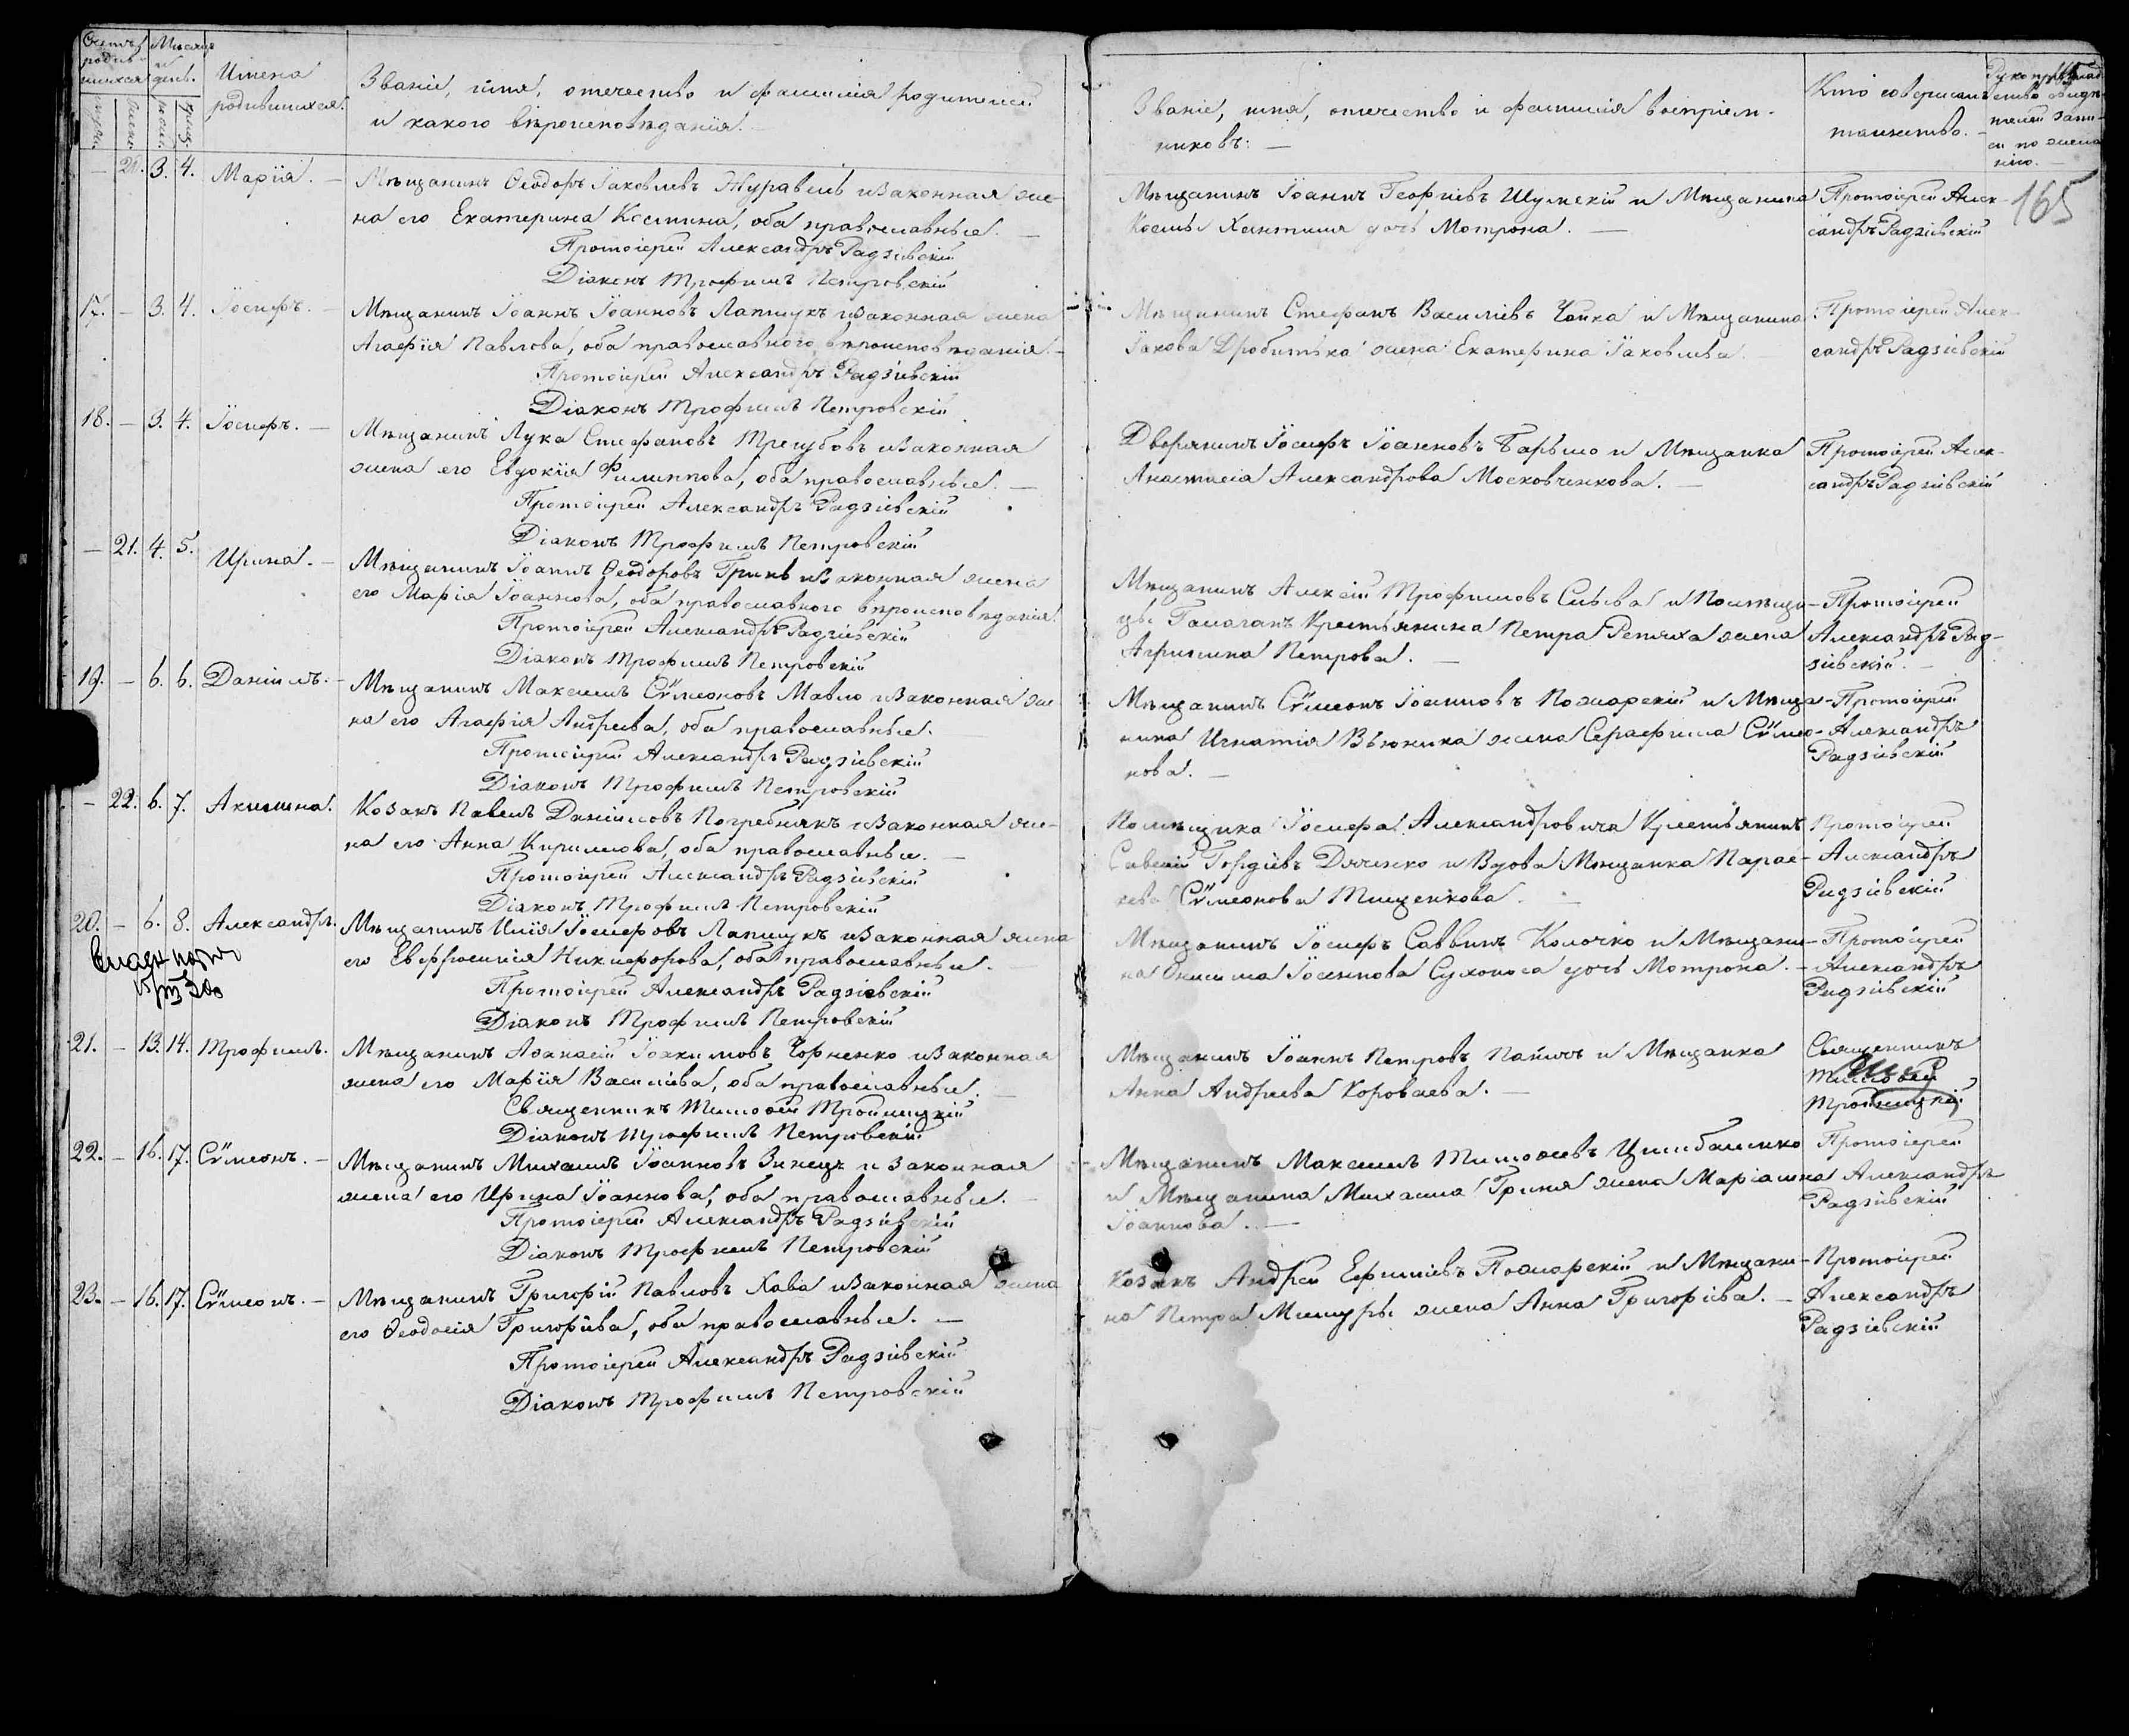 Счетъ родив-
шихся
Мѣсяцъ
и
день.
Имена
родившихся.
Званіе, имя, отечество и фамилія родителей
и какого вѣроисповѣданія.
Званіе, имя, отечество и фамилія воспріем-
никовъ: —
Кто совершалъ
таинство. —
165
— 20. 3. 4. Марія. —
Мѣщанинъ Ѳеодоръ Іаковлевъ Журавель и законная же-
на его Екатерина Космина, оба православные. —
Протоіерей Александръ Радзіевскій
Діаконъ Трофимъ Петровскій
Мѣщанинъ Іоаннъ Георгіевъ Шумскій и Мѣщанина
Космы дочь Мотрона. —
Протоіерей Алек-
сандръ Радзіевскій
17. — 3. 4. Іосифъ. —
Мѣщанинъ Іоаннъ Іоанновъ Лапшукъ и законная жена
Агафія Павлова, оба православного вѣроисповѣданія. —
Протоіерей Александръ Радзіевскій
Діаконъ Трофимъ Петровскій
Мѣщанинъ Стефанъ Василіевъ Чайка и Мѣщанина
Іакова Дробитька жена Екатерина Іаковлева
Протоіерей Алек-
сандръ Радзіевскій
18. — 3. 4. Іосифъ. —
Мѣщанинъ Лука Стефановъ Трегубовъ и законная
жена его Евдокія Филиппова, оба православные. —
Протоіерей Александръ Радзіевскій
Діаконъ Трофимъ Петровскій
Дворянинъ Іосифъ Іоанновъ и Мѣщанка
Анастасія Александрова Московченкова. —
Протоіерей Алек-
сандръ Радзіевскій
— 21. 4. 5. Ирина. —
Мѣщанинъ Іоаннъ Ѳеодоровъ Гринь и законная жена
его Марія Іоаннова, оба православного вѣроисповѣданія.
Протоіерей Александръ Радзіевскій
Діаконъ Трофимъ Петровскій
Мѣщанинъ Алексій Трофимовъ и Помѣщи-
цы Галаганъ Крестьянина Петра Репяха жена
Агрипина Петрова. —
Протоіерей
Александръ Рад-
зіевскій. —
19. — 6. 6. Даніилъ. —
Мѣщанинъ Максимъ Сѵмеоновъ Мавло и законная же-
на его Агафія Андреева, оба православные.
Протоіерей Александръ Радзіевскій
Діаконъ Трофимъ Петровскій
Мѣщанинъ Сѵмеонъ Іоанновъ Пожарскій и Мѣща-
нина Игнатія Вьюника жена Серафима Сѵмео-
нова. —
Протоіерей
Александръ
Радзіевскій
— 22. 6. 7. Акилина.
Козакъ Павелъ Даніиловъ Погребнякъ и законная же-
на его Анна Кириллова, оба православные. —
Протоіерей Александръ Радзіевскій
Діаконъ Трофимъ Петровскій
Помѣщика Іосифа Александровича Крестьянинъ
Гордіевъ Дяченко и Вдова Мѣщанка Парас-
кева Сѵмеонова Тищенкова. —
Протоіерей
Александръ
Радзіевскій
20. — 6. 8. Александръ.
Мѣщанинъ Илія Іосифовъ Лапшукъ и законная жена
его Евфросинія Никифорова, оба православные. —
Протоіерей Александръ Радзіевскій
Діаконъ Трофимъ Петровскій
Мѣщанинъ Іосифъ Саввинъ Колочко и Мѣщани-
на Онисима Іоаннова Сухоноса дочь Мотрона. —
Протоіерей
Александръ
Радзіевскій
21. — 13. 14. Трофимъ.
Мѣщанинъ Аѳанасій Іоакимовъ Чорненко и законная
жена его Марія Василіева, оба православные. —
Священникъ Тимоѳей Троицкій
Діаконъ Трофимъ Петровскій
Мѣщанинъ Іоаннъ Петровъ и Мѣщанка
Анна Андреева Короваева. —
Священникъ
Тимоѳей
Троицкій
22. — 16. 17. Сѵмеонъ. —
Мѣщанинъ Михаилъ Іоанновъ Зинецъ и законная
жена его Ирина Іоаннова, оба православные. —
Протоіерей Александръ Радзіевскій
Діаконъ Трофимъ Петровскій
Мѣщанинъ Максимъ Тимоѳеевъ Цимбаленко
и Мѣщанина Михаила Гриня жена Маріамна
Іоаннова. —
Протоіерей
Александръ
Радзіевскій
23. — 16. 17. Сѵмеонъ. —
Мѣщанинъ Григорій Павловъ Хава и законная жена
его Ѳеодосія Григоріева, оба православные. —
Протоіерей Александръ Радзіевскій
Діаконъ Трофимъ Петровскій
Козакъ Андрей Ефиміевъ Пожарскій и Мѣщани-
на Петра Мишуры жена Анна Григоріева. —
Протоіерей
Александръ
Радзіевскій